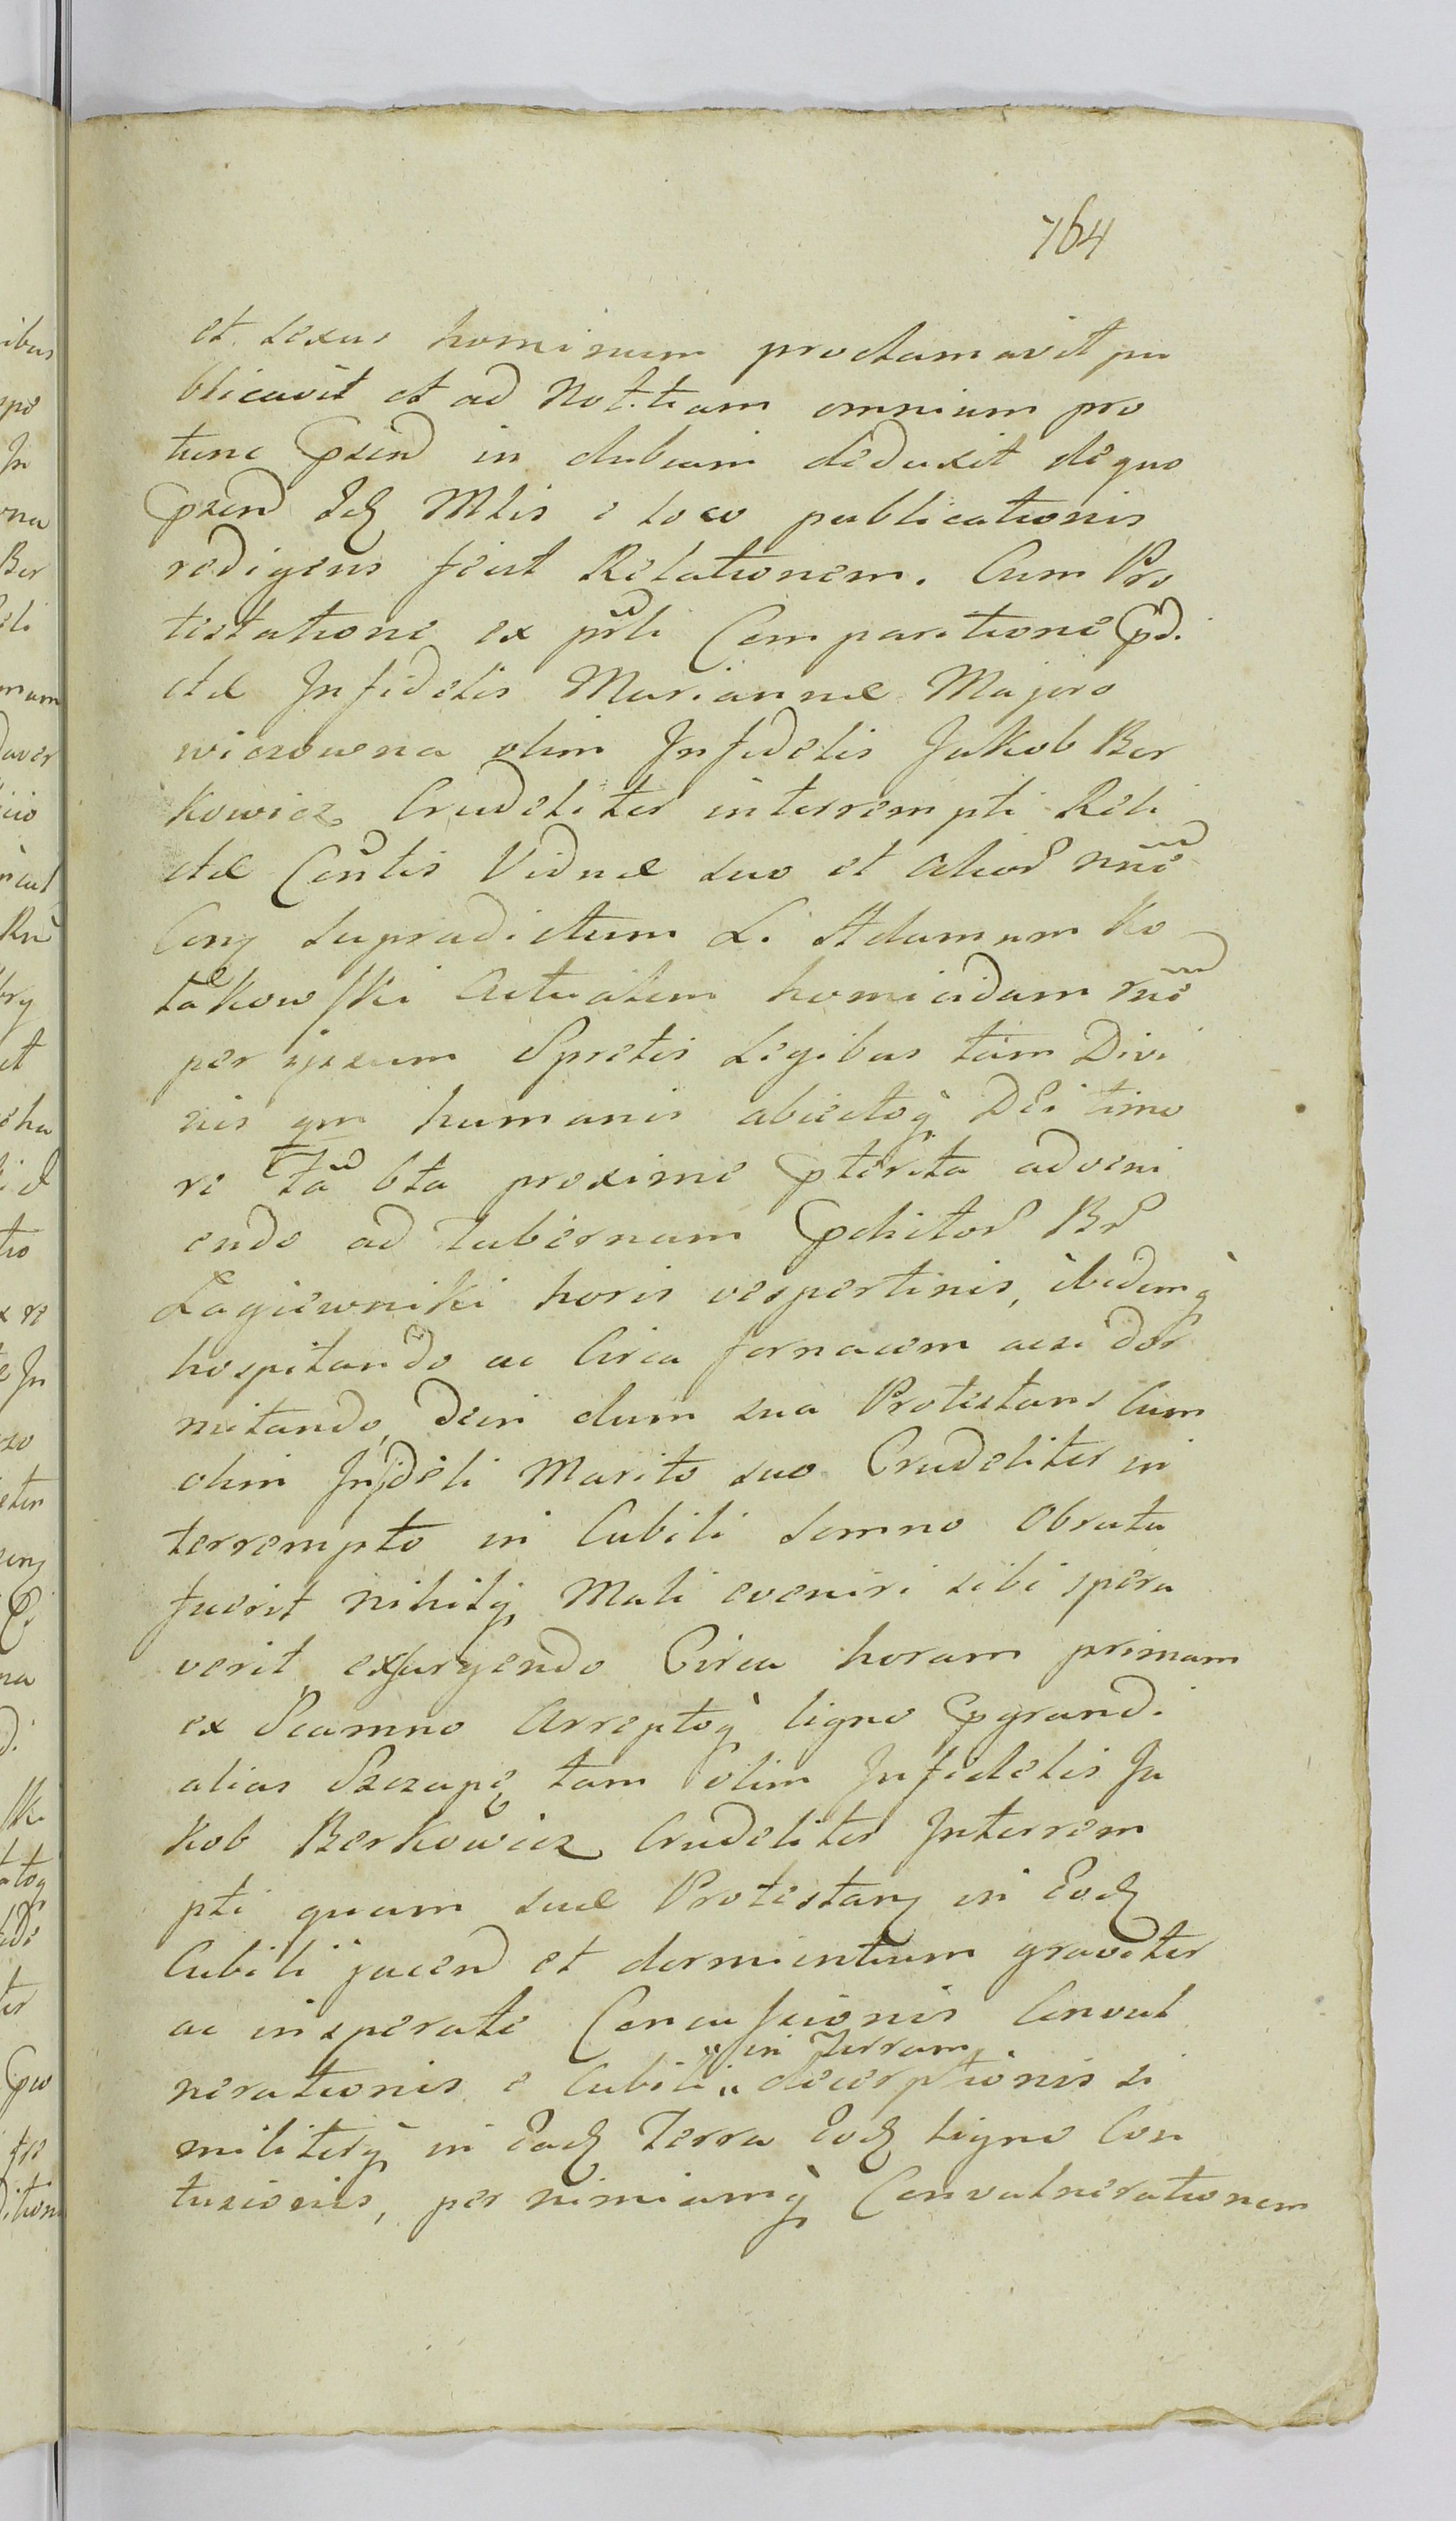 764
et sexus hominum proclamavit pu
blicavit et ad Notitiam omnium pro
tunc pñd in dubium deduxit de quo
pñd Idq Mlis e loco publicationis
redigens fecit Relationem. Cum Pro
testatione ex pñli Comparitione pd.
ctæ Infidelis Mariannæ Majero
wiczowena olim Infidelis Jakob Ber
kowicz Crudeliter interrempti Reli
ctæ Cõntis Viduæ suo et alior nñe
Conq supradictum L. Adamum Ko
łakowski Actualem homicidam rñe
per ipsum Spretis Legibus tam Divi
nis qm humanis abiectoq Dei timo
re Sta bta proxime pterita adveni
endo ad Tabernam pdictor Br
Łagiewniki horis vespertinis, ibidemq
hospitando ac Circa fornacem acsi dor
mitando, dein dum sua Protestans Cum
olim Infideli Marito suo Crudeliter in
terrempto in Cubili somno Obruta
fuerit nihilq Mali eveniri sibi spera
verit exsurgendo Circa horam primam
ex Scamno Arreptoq ligno pgrandi
alias Szczapę tam olim Infidelis Ja
kob Berkowicz Crudeliter Interrem
pti quam suæ Protestanq in Eodq
Cubili jacend et dormientium graviter
ac insperate Concussionis Convul
nerationis e Cubili „ decerptionis si
„ in Terram
militerq in Eadq Terra Eodq ligno Con
tusionis, per nimiamq Convulnerationem